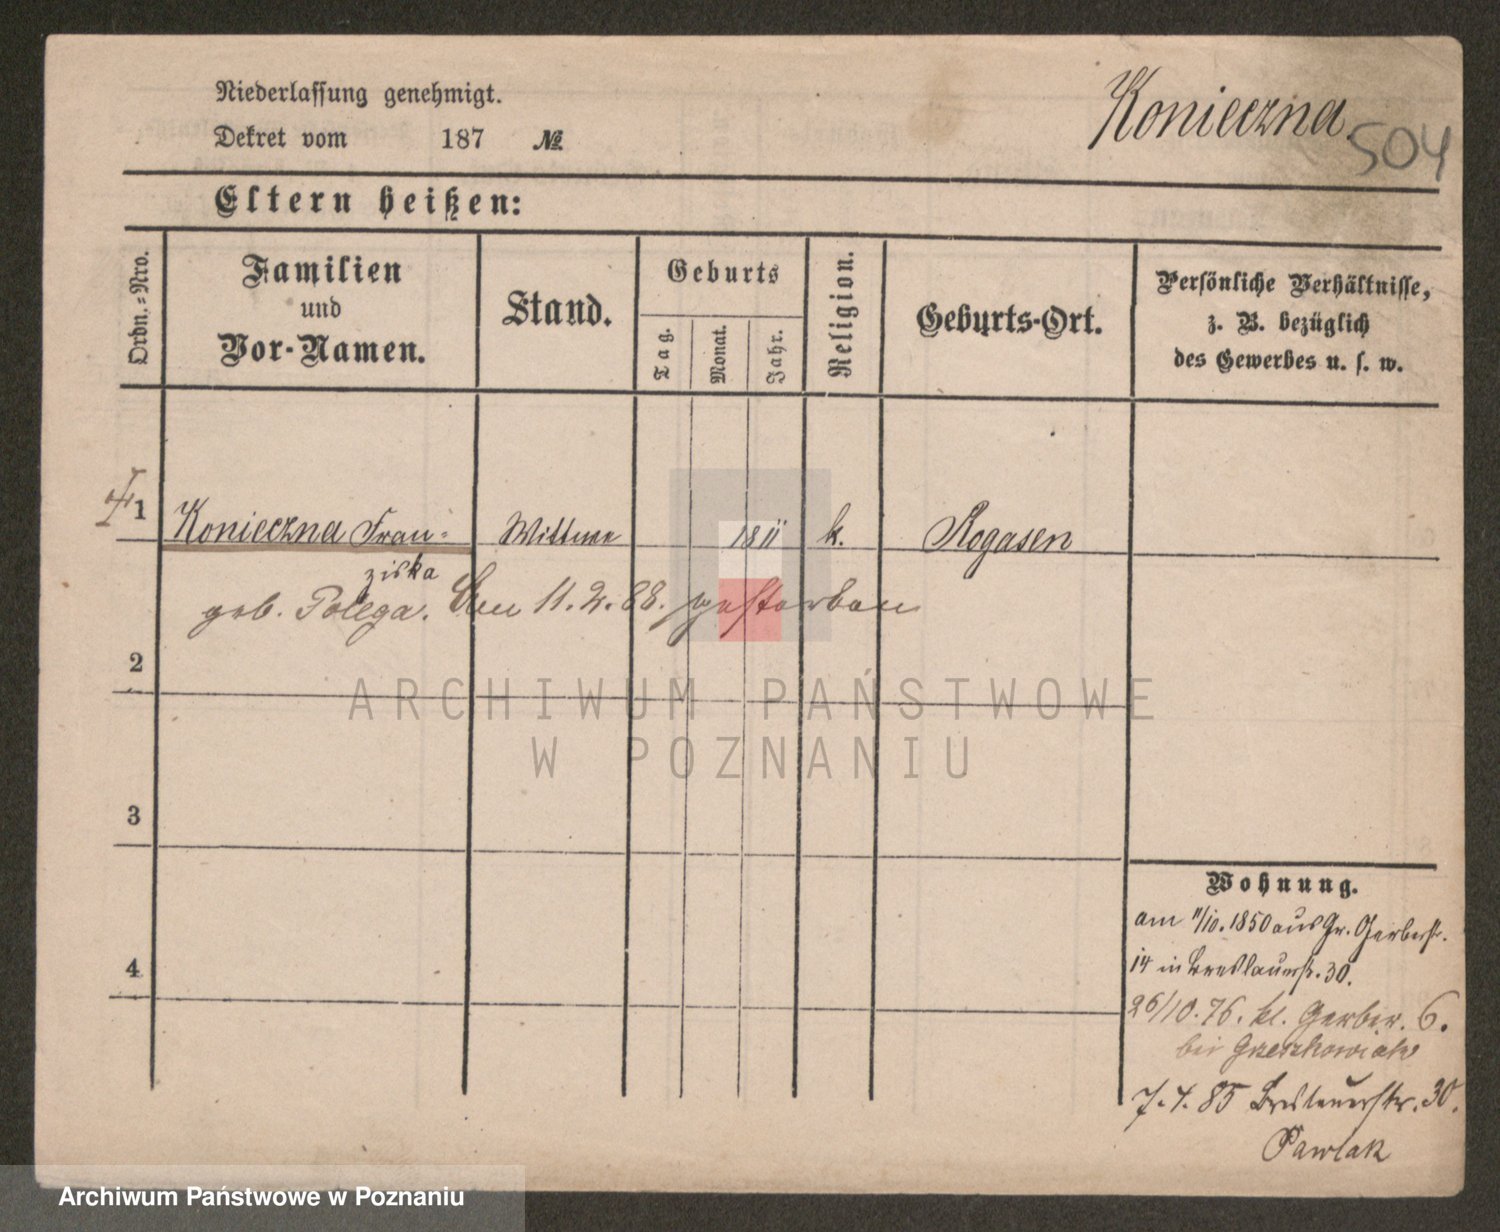 Niederlassung genehmigt.
Dekret vom 187 №
Konieczna
504
Eltern heißen:
Ordn.-Nro.
Familien
und
Vor-Namen.
Stand.
Geburts
Tag.
Monat.
Jahr.
Religion.
Geburts-Ort.
Persönliche Verhältnisse,
z. B. bezüglich
des Gewerbes u. s. w.
1 Konieczna Fran- Wittwe 1811 k. Rogasen
ziska
geb. Polega. Den 11.2.88. gestorben
2
3
4
ARCHIWUM PAŃSTWOWE
W POZNANIU
Wohnung.
am 11/10. 1850 aus Gr. Gerberstr.
14 in Breslauerstr. 30.
26/10. 76. kl. Gerber. 6.
bei Grzeszkowiak
7. 4. 85 Breslauerstr. 30.
Pawlak
Archiwum Państwowe w Poznaniu